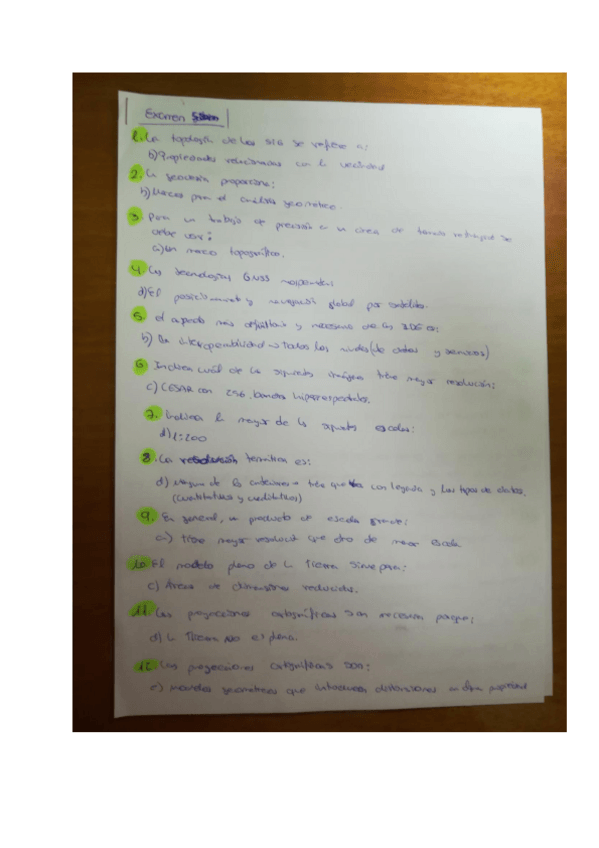 Examen
1. La topología de los SIG se refiere a:
b) Propiedades relacionadas con la vecindad
2. La geodesia proporciona:
b) Marco para el análisis geométrico
3. Para un trabajo de precisión en un área de tamaño se
debe usar:
a) Un marco topográfico.
4. Las tecnologías GNSS
d) El posicionamiento y navegación global por satélite.
5. el aspecto más y necesario de las IDE es:
b) La interoperabilidad a todos los (de datos y servicios)
6 Indica cuál de las siguientes imágenes tiene mayor resolución:
c) CESAR con 256 bandas hiperespectrales.
7. Indica la mayor de las siguientes escalas:
d) 1:200
8. La temática es:
d) Ninguna de las anteriores tiene que con leyenda y los tipos de datos.
(cuantitativos y cualitativos)
9. En general, un producto de escala grande:
a) tiene mayor resolución que otro de menor escala
10. El modelo plano de la Tierra sirve para:
c) Áreas de dimensiones reducidas.
11. Las proyecciones cartográficas son necesarias porque:
d) La Tierra No es plana.
12. Las proyecciones cartográficas son:
c) modelos geométricos que introducen distorsiones en alguna propiedad